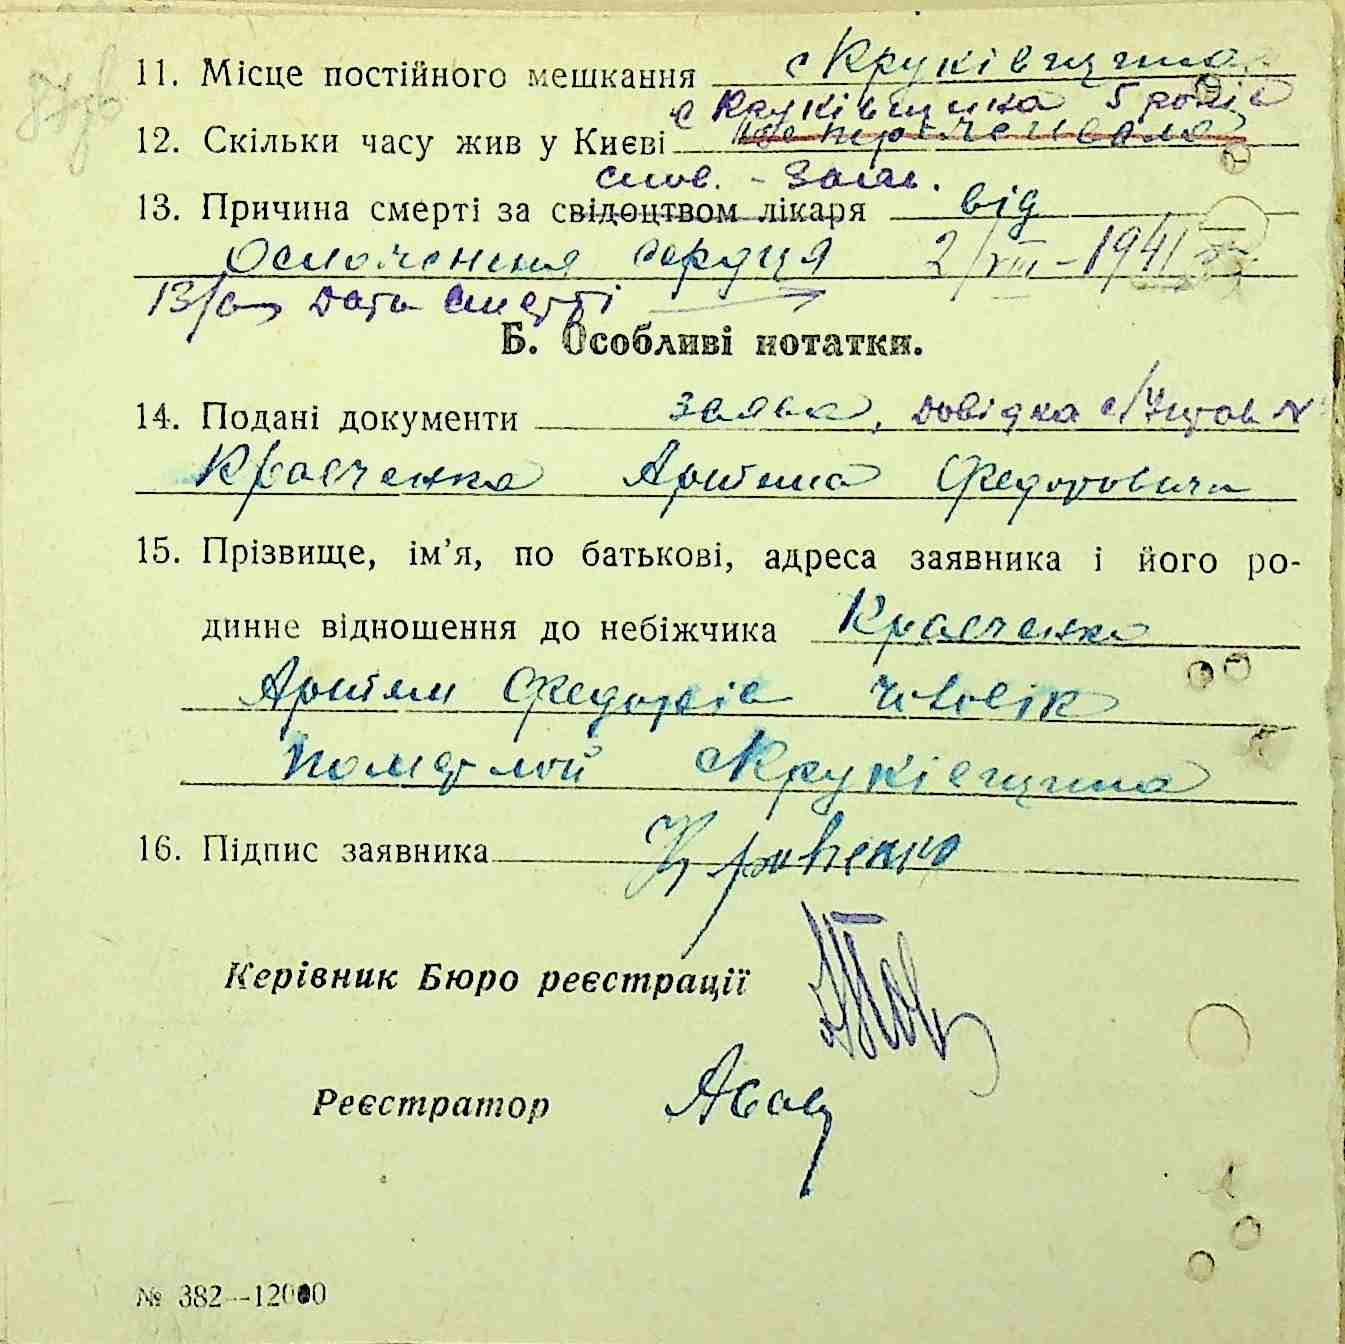 11. Місце постійного мешкання с Круківщина
с Круківщина 5 років
12. Скільки часу жив у Києві
слов. - Заяв.
13. Причина смерті за свідоцтвом лікаря від
Ослоченния сердця 2/VIII-1941
13/а, Дата смерті
Б. Особливі нотатки.
14. Подані документи заява, довідка с/Управ №
Кравченка Артема Федоровича
15. Прізвище, ім’я, по батькові, адреса заявника і його ро-
динне відношення до небіжчика Кравченко
Артем Федорів чоловік
померлой с Круківщина
16. Підпис заявника Кравченко
Керівник Бюро реєстрації
Реєстратор
№ 382—12000